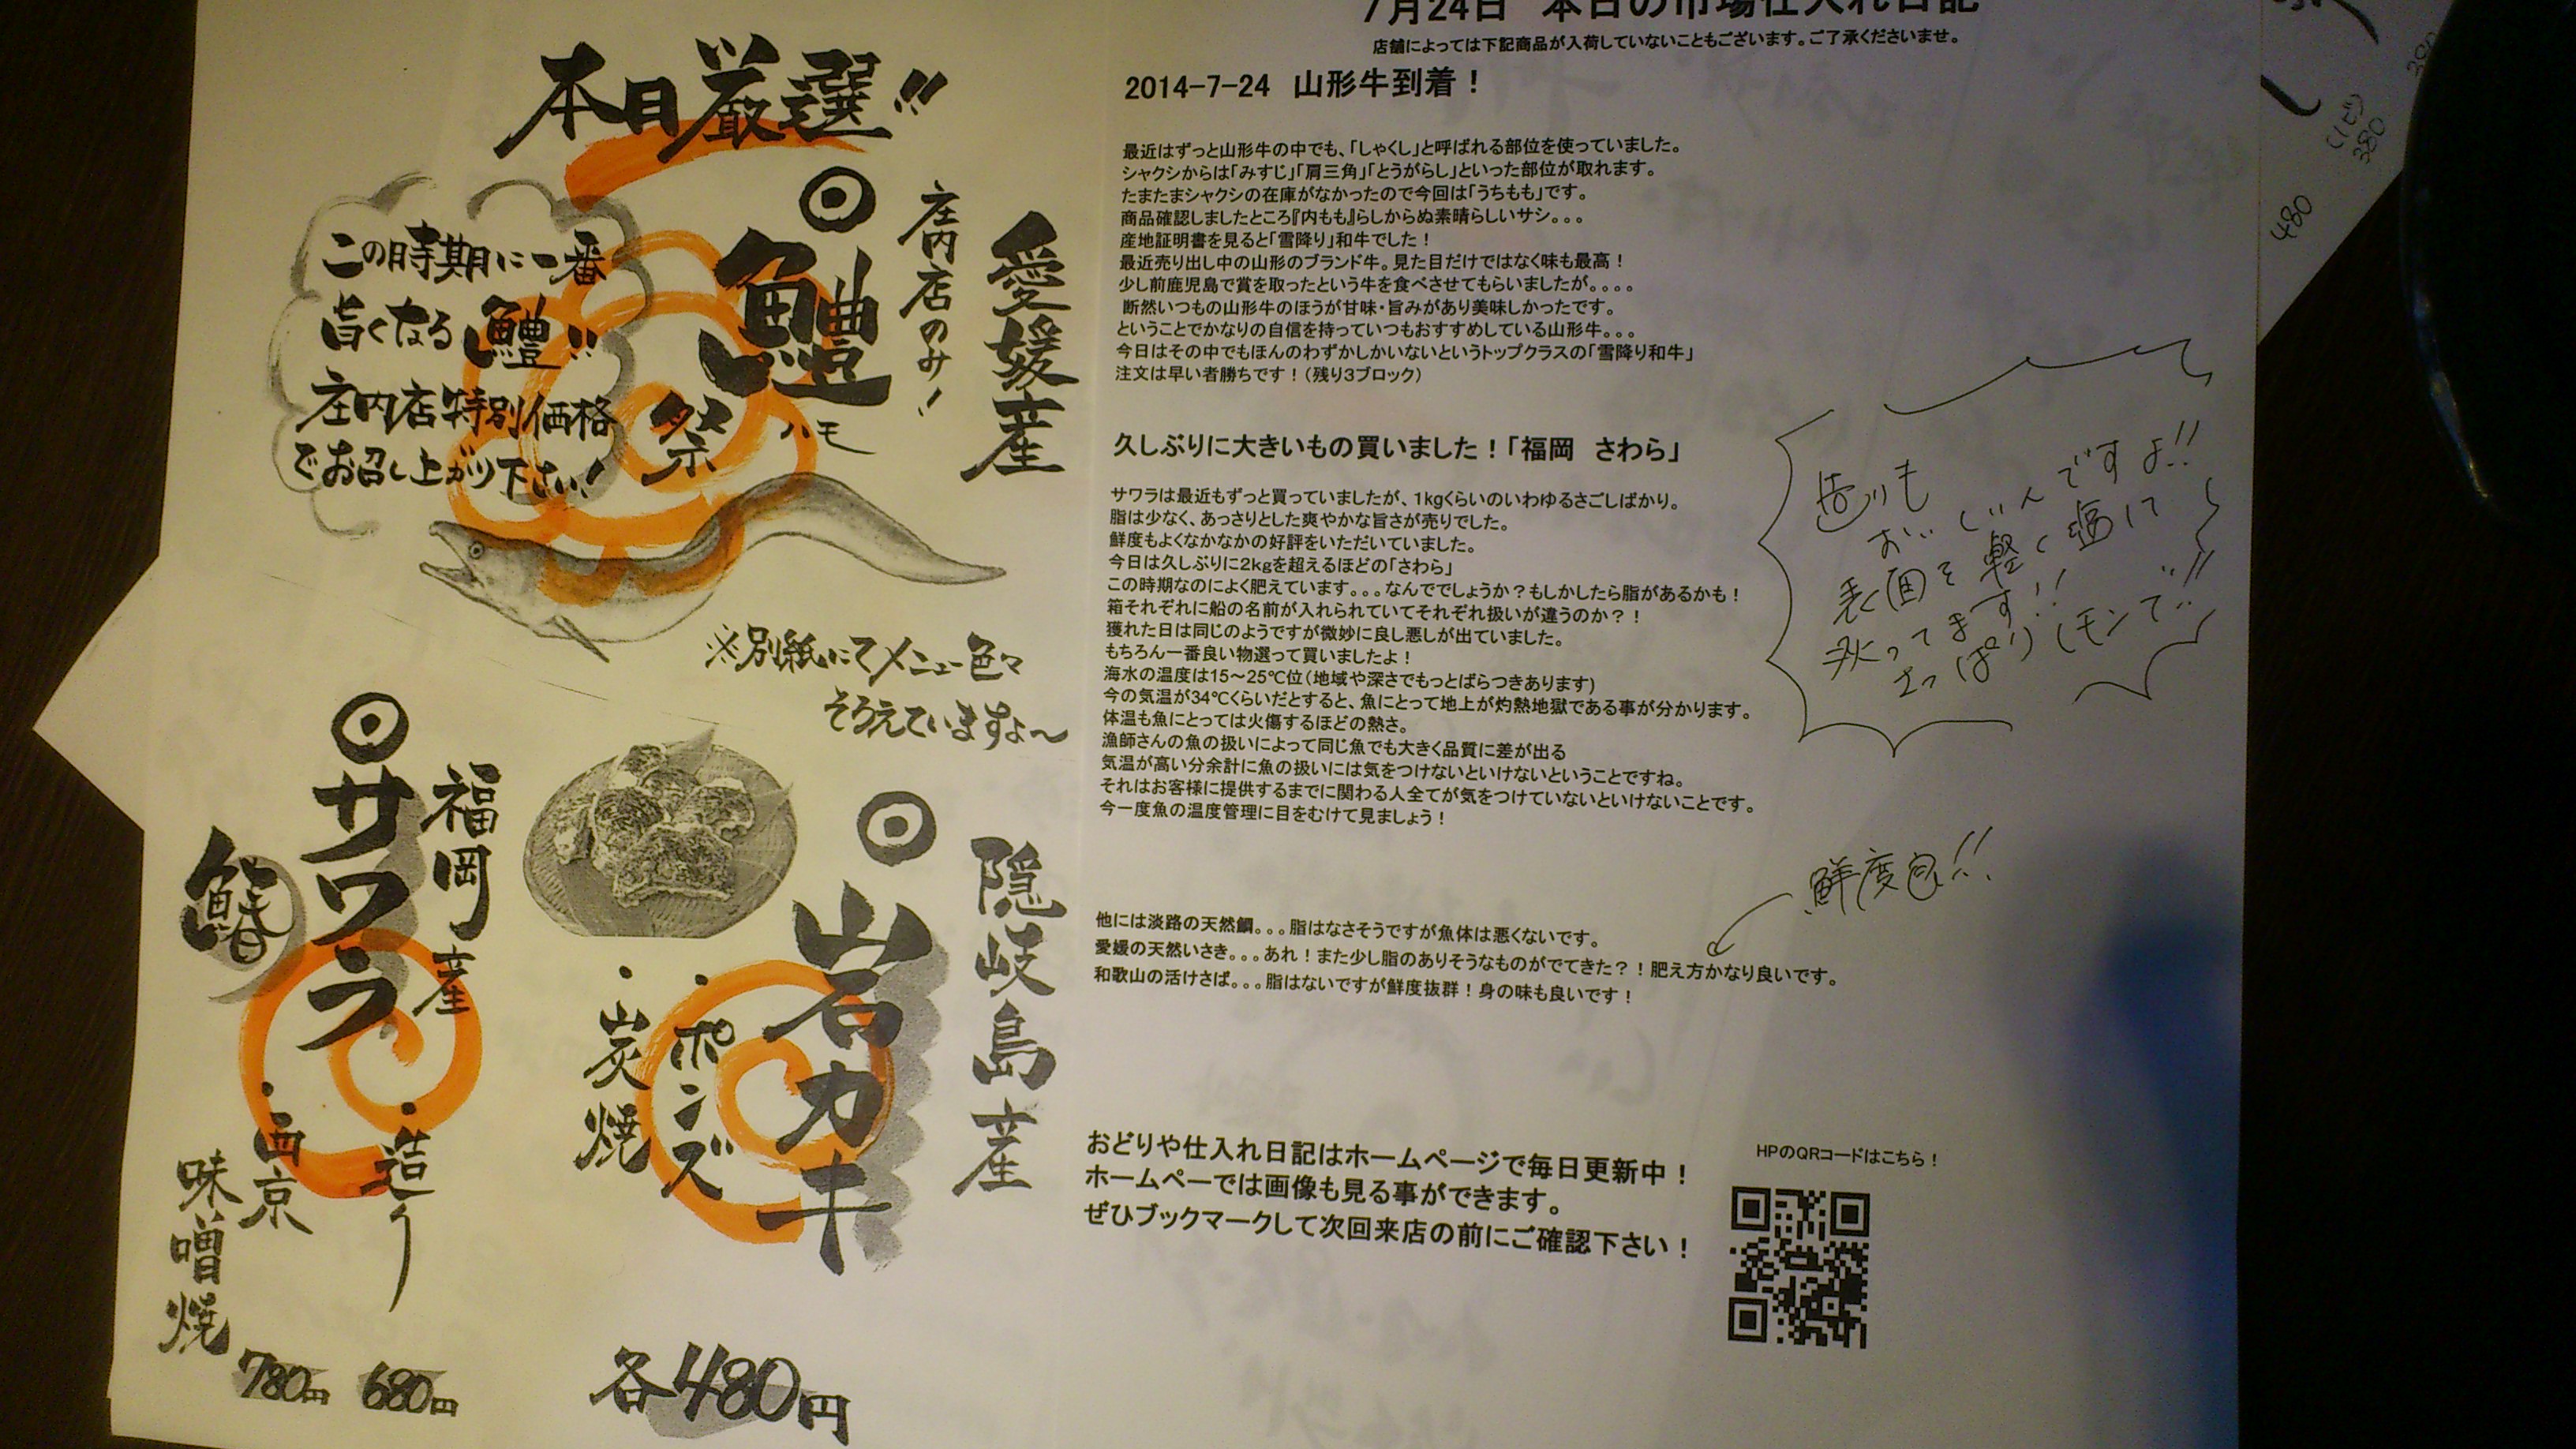 本日厳選!!
愛媛産
庄内店のみ!
◎鱧祭
ハモ
この時期に一番
旨くなる鱧!!
庄内店特別価格
でお召し上がり下さい!
※別紙にてメニュー色々
そろえていますよ〜
隠岐島産
◎岩カキ
・ポンズ
・炭焼
各480円
福岡産
◎サワラ
鰆
・造り
680円
・西京
味噌焼
780円
7月24日 本日の市場仕入れ日記
店舗によっては下記商品が入荷していないこともございます。ご了承くださいませ。
2014-7-24 山形牛到着！
最近はずっと山形牛の中でも、「しゃくし」と呼ばれる部位を使っていました。
シャクシからは「みすじ」「肩三角」「とうがらし」といった部位が取れます。
たまたまシャクシの在庫がなかったので今回は「うちもも」です。
商品確認しましたところ『内もも』らしからぬ素晴らしいサシ。。。
産地証明書を見ると「雪降り」和牛でした！
最近売り出し中の山形のブランド牛。見た目だけではなく味も最高！
少し前鹿児島で賞を取ったという牛を食べさせてもらいましたが。。。。
断然いつもの山形牛のほうが甘味・旨みがあり美味しかったです。
ということでかなりの自信を持っていつもおすすめしている山形牛。。。
今日はその中でもほんのわずかしかいないというトップクラスの「雪降り和牛」
注文は早い者勝ちです！（残り3ブロック）
久しぶりに大きいもの買いました！「福岡 さわら」
サワラは最近もずっと買っていましたが、1kgくらいのいわゆるさごしばかり。
脂は少なく、あっさりとした爽やかな旨さが売りでした。
鮮度もよくなかなかの好評をいただいていました。
今日は久しぶりに2kgを超えるほどの「さわら」
この時期なのによく肥えています。。。なんででしょうか？もしかしたら脂があるかも！
箱それぞれに船の名前が入れられていてそれぞれ扱いが違うのか？！
獲れた日は同じのようですが微妙に良し悪しが出ていました。
もちろん一番良い物選って買いましたよ！
海水の温度は15〜25℃位（地域や深さでもっとばらつきあります）
今の気温が34℃くらいだとすると、魚にとって地上が灼熱地獄である事が分かります。
体温も魚にとっては火傷するほどの熱さ。
漁師さんの魚の扱いによって同じ魚でも大きく品質に差が出る
気温が高い分余計に魚の扱いには気をつけないといけないということですね。
それはお客様に提供するまでに関わる人全てが気をつけていないといけないことです。
今一度魚の温度管理に目をむけて見ましょう！
造りも
おいしいんですよ!!
表面を軽く塩にて
さっぱりレモンで!!
鮮度◎!!
他には淡路の天然鯛。。。脂はなさそうですが魚体は悪くないです。
愛媛の天然いさき。。。あれ！また少し脂のありそうなものがでてきた？！肥え方かなり良いです。
和歌山の活けさば。。。脂はないですが鮮度抜群！身の味も良いです！
おどりや仕入れ日記はホームページで毎日更新中！
ホームペーでは画像も見る事ができます。
ぜひブックマークして次回来店の前にご確認下さい！
HPのQRコードはこちら！
380
480